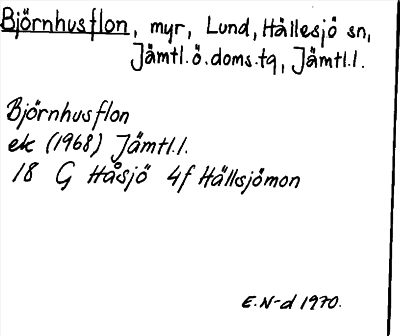 Björnhusflon, myr, Lund, Hällesjö sn,
Jämtl.ö.doms.tg, Jämtl.l.
Björnhusflon
ek (1968) Jämtl.l.
18 G Håsjö 4f Hällsjömon
E.N-d 1970.